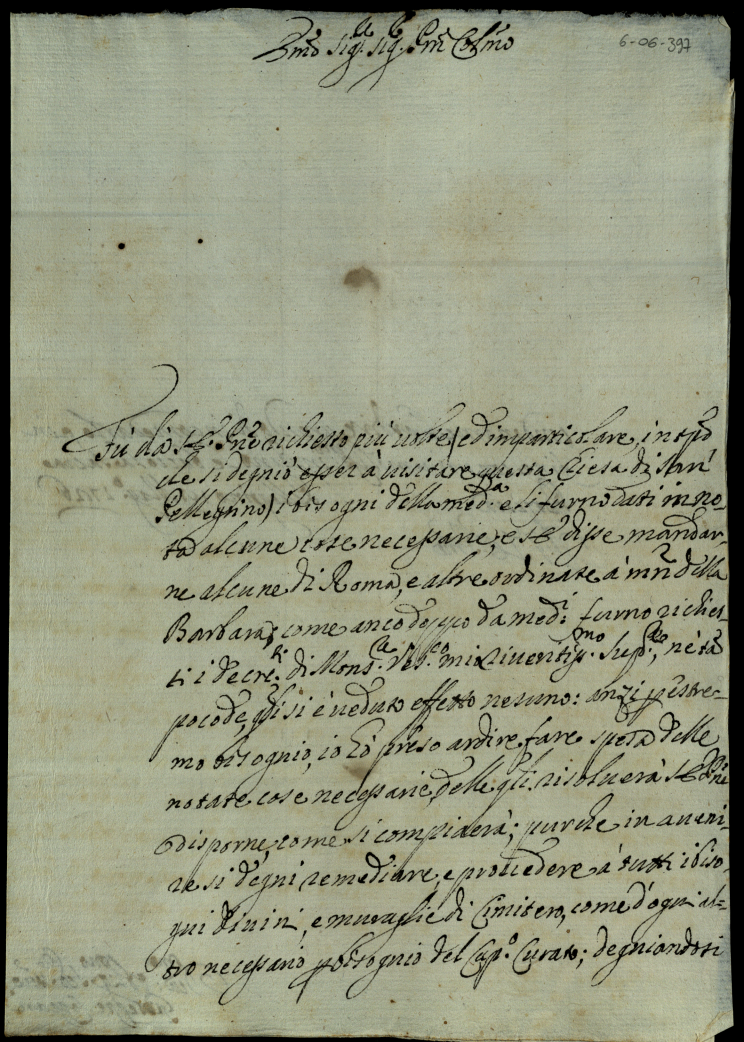 6-06-397
Sig.r Sig.r
Fù dà richiesto più uolte, ed inparticolare, in
che si degniò esser à uisitare questa Ciesa di San
Pellegrino) i bisogni della med.ma e li furno dati in no-
ta alcune cose necessarie, e disse mandar-
ne alcune di Roma, e altre ordinate à della
Barbara; come anco doppo da med.i furno richies-
ti i decre.ti di Mons.re mio riueritiss.mo ne tan
poco de, si è ueduto effetto nesuno: anzi p estre-
mo bisognio, io hò preso ardire fare spesa delle
notate cose necessarie, delle risoluerà
disporne, come si compiacerà; purche in aueni-
re si degni remediare, e prouedere à tutti i biso-
gni Diuini, e muraglie di Cimitero, come d'ogni al-
tro necessario p bisognio del Cap.o Curato; degniandosi